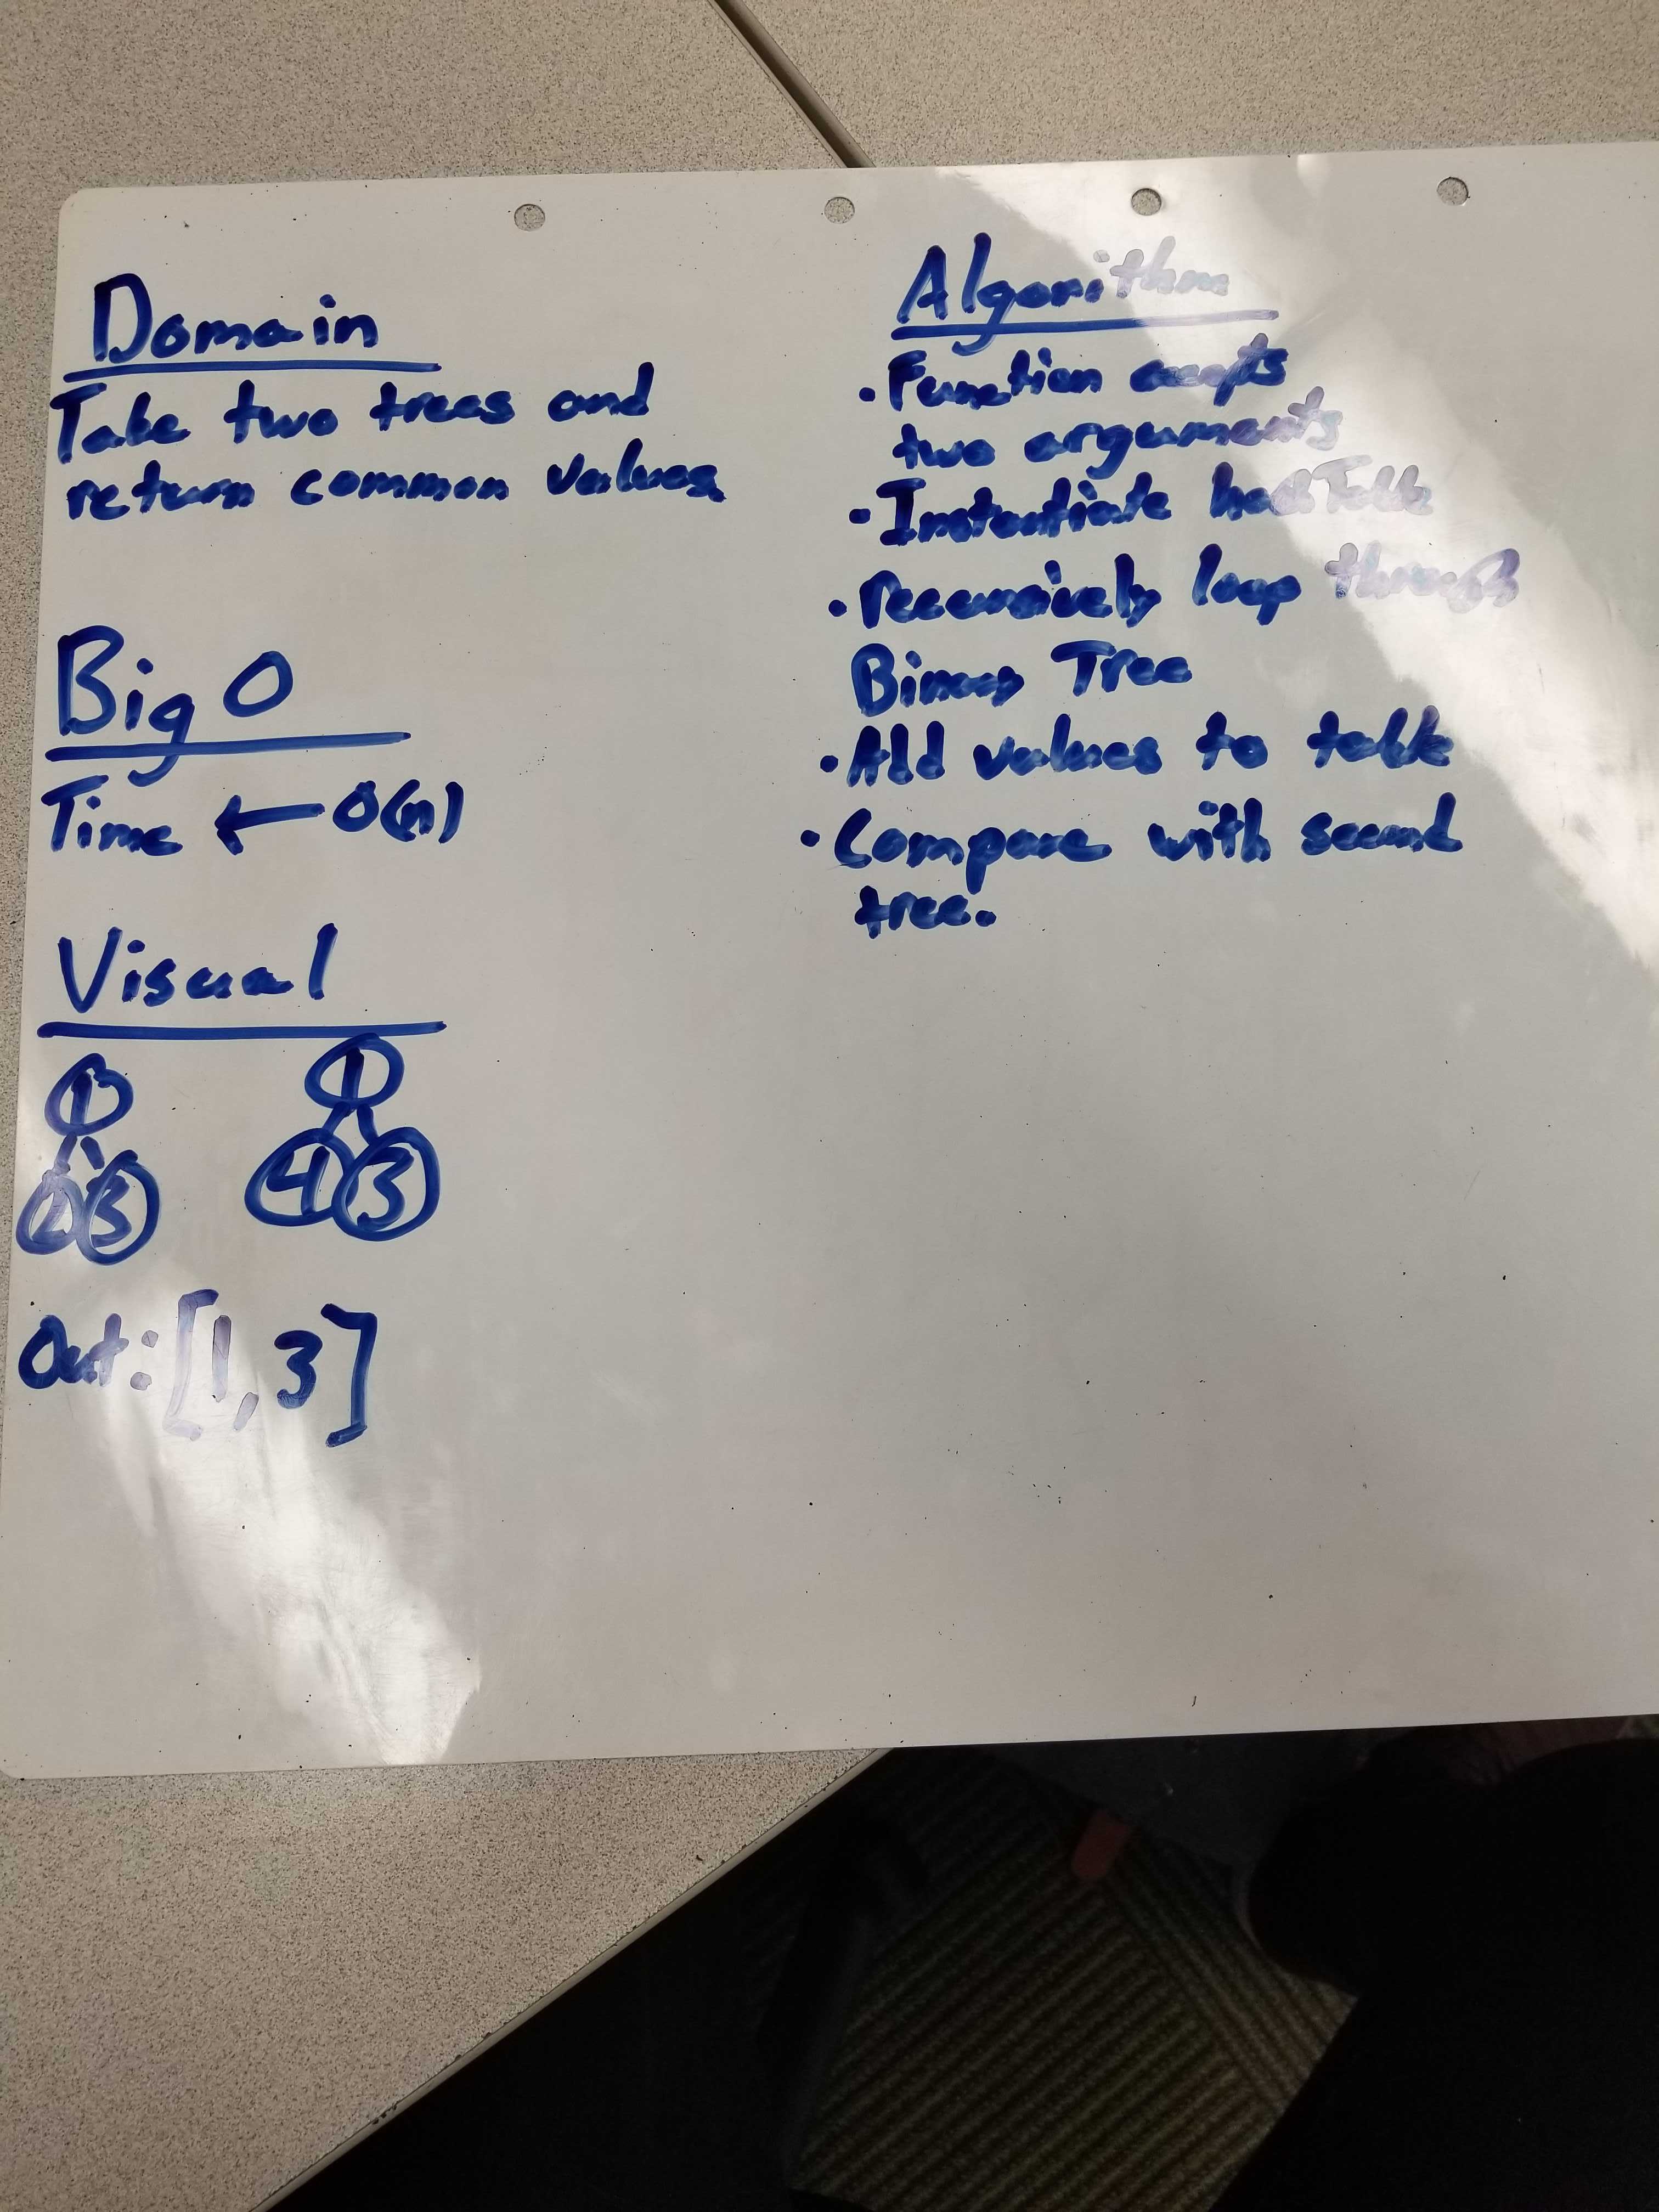 Domain
Take two trees and
return common values
Big O
Time ← O(n)
Visual
1
2 3
1
4 3
Out: [1, 3]
Algorithm
• Function accepts
two arguments
• Instantiate hashTable
• recursively loop through
Binary Tree
• Add values to table
• Compare with second
tree.